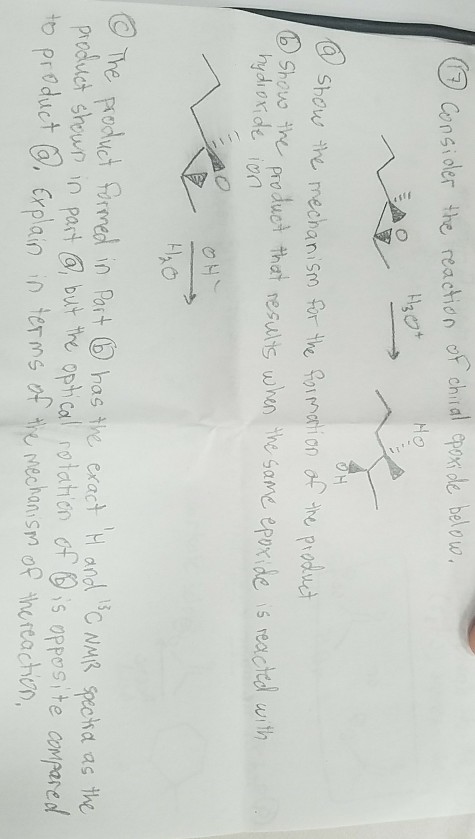 17 Consider the reaction of chiral epoxide below.
O
H₃O⁺
HO
OH
a show the mechanism for the formation of the product
b Show the product that results when the same epoxide is reacted with
hydroxide ion
O
OH⁻
H₂O
c The product formed in Part b has the exact ¹H and ¹³C NMR spectra as the
product shown in part a, but the optical rotation of b is opposite compared
to product a. Explain in terms of the mechanism of the reaction.